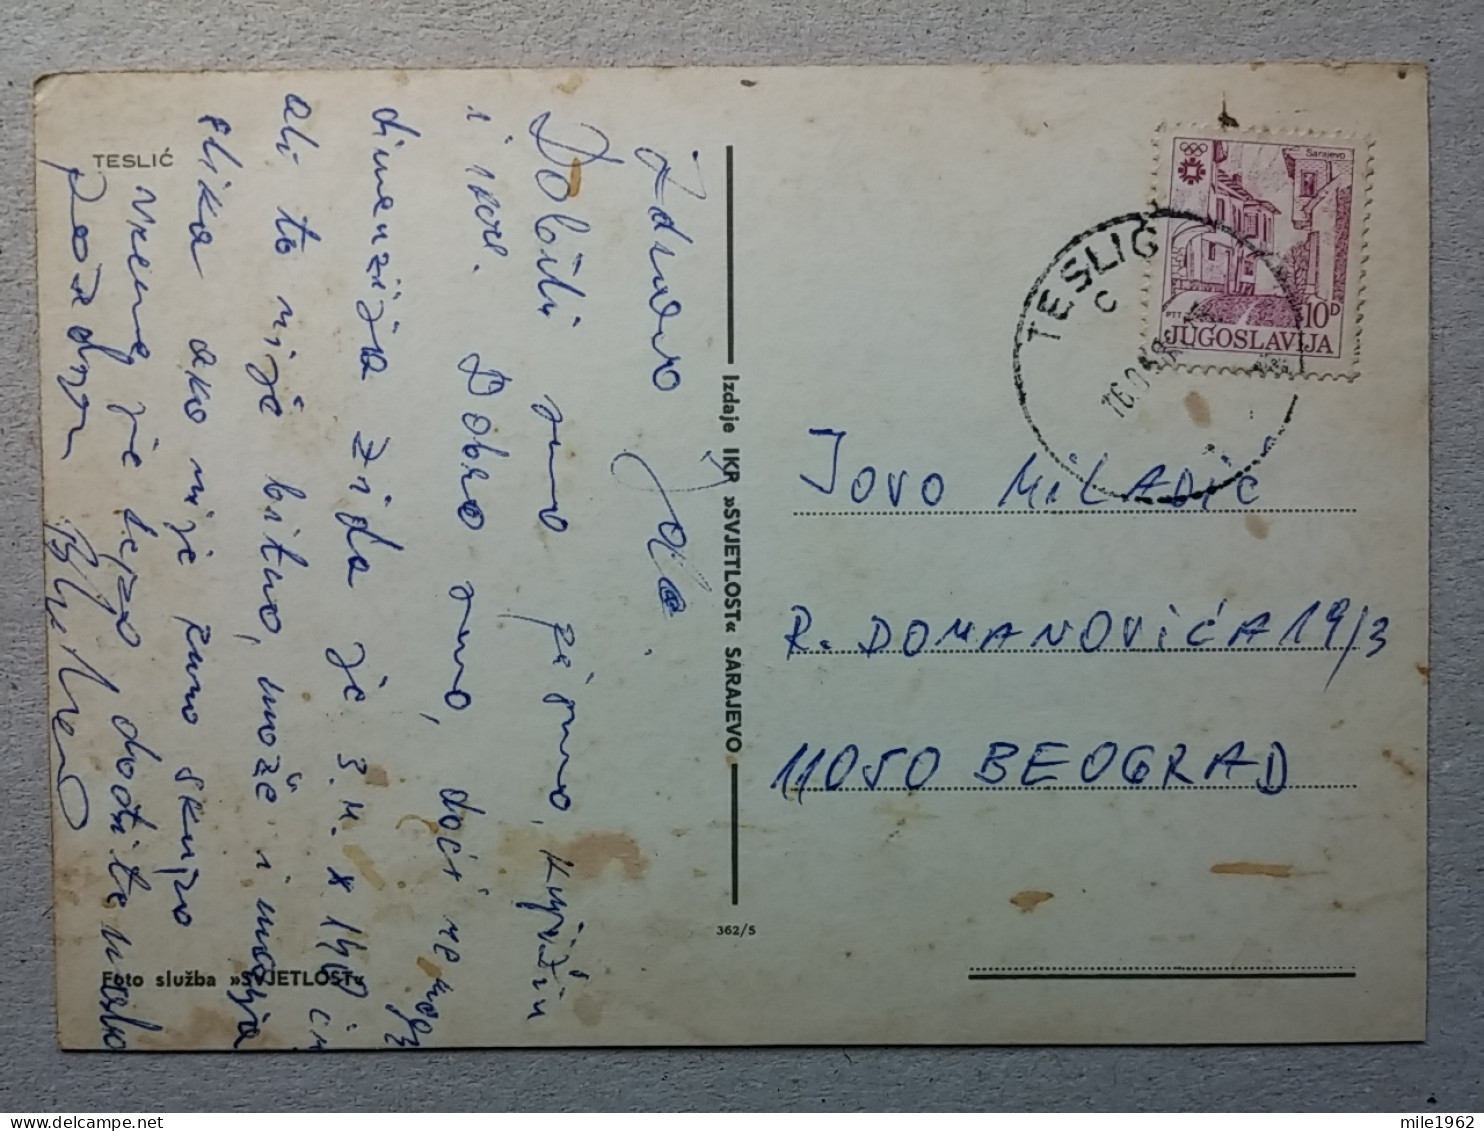 TESLIĆ
Zdravo Jole.
Dobili smo pismo, knjižicu
i sve. Dobro smo, doći ne mogu
dimenzija zida je 3. m. x 140 cm
ali to nije bitno, može i manja
slika ako nije puno skupo
vreme je lepo dođite malo
pozdrav
Foto služba »SVJETLOST«
Izdaje IKP »SVJETLOST« SARAJEVO
362/5
Sarajevo
PTT 10D
JUGOSLAVIJA
TESLIĆ
C
JOVO MILADIĆ
R. DOMANOVIĆA 19/3
11050 BEOGRAD
mile1962